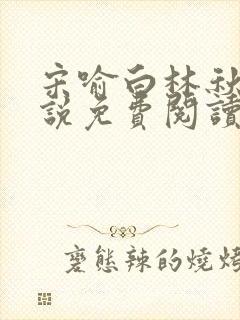 宋喻白林秋
說免費閱讀
變態辣的燒烤